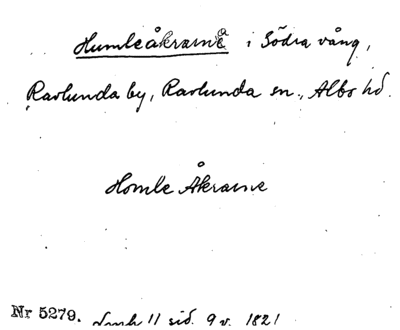 Humleåkrarne i Södra vång,
Ravlunda by, Ravlunda sn., Albo hd.
Homle Åkrarne
Nr 5279. 11 sid. 9 v. 1821